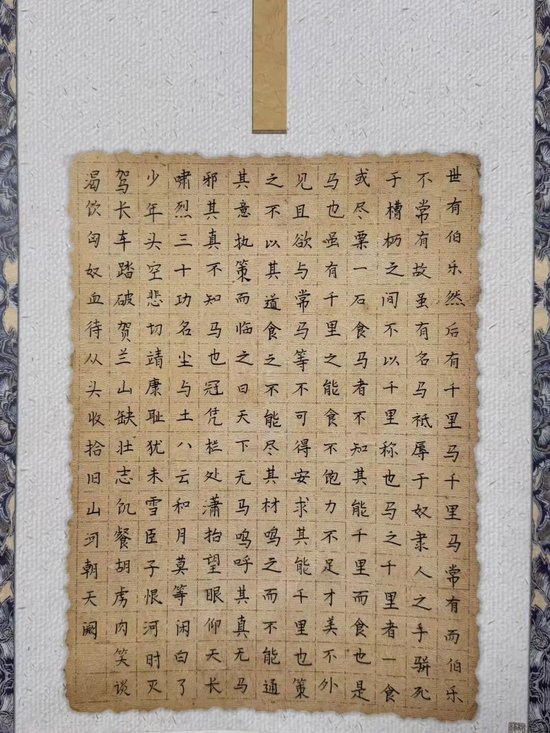 世有伯乐然后有千里马千里马常有而伯乐
不常有故虽有名马祗辱于奴隶人之手骈死
于槽枥之间不以千里称也马之千里者一食
或尽粟一石食马者不知其能千里而食也是
马也虽有千里之能食不饱力不足才美不外
见且欲与常马等不可得安求其能千里也策
之不以其道食之不能尽其材鸣之而不能通
其意执策而临之曰天下无马鸣呼其真无马
邪其真不知马也冠凭栏处潇抬望眼仰天长
啸烈三十功名尘与土八云和月莫等闲白了
少年头空悲切靖康耻犹未雪臣子恨河时灭
驾长车踏破贺兰山缺壮志饥餐胡虏肉笑谈
渴饮匈奴血待从头收拾旧山河朝天阙